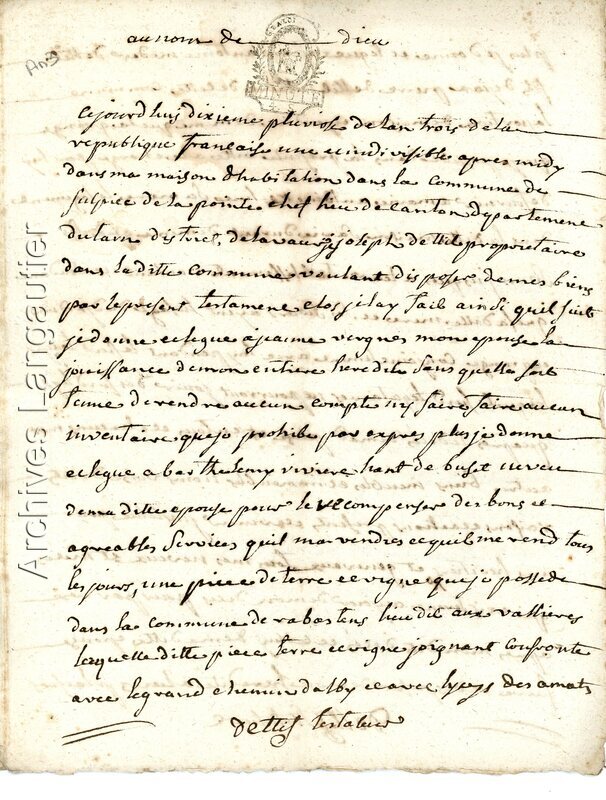 au nom de dieu
An 3
cejourdhuy dixieme pluviose de lan trois de la
republique francaise une et indivisible apres midy
dans ma maison dhabitation dans la commune de
sulpice de la pointe chef lieu de canton departement
du tarn district de lavaur je joseph dettil proprietaire
dans la ditte commune voulant disposer de mes biens
par le present testament clos je lay fait ainsi quil suit
je donne et legue a jeanne vergnes mon epouse la
jouissance de mon entiere heredité sans quelle soit
tenue de rendre aucun compte ny faire faire aucun
inventaire que je prohibe par expres plus je donne
et legue a barthelemy viviere hant de buset neveu
de ma ditte epouse pour le recompenser des bons et
agreables services quil ma rendres et quil me rend tous
les jours, une piece de terre et vigne que je possede
dans la commune de rabastens lieu dit aux vallieres
laquelle ditte piece terre et vigne joignant confronte
avec le grand chemin dalby et avec des amats
dettil testateur
Archives Langautier